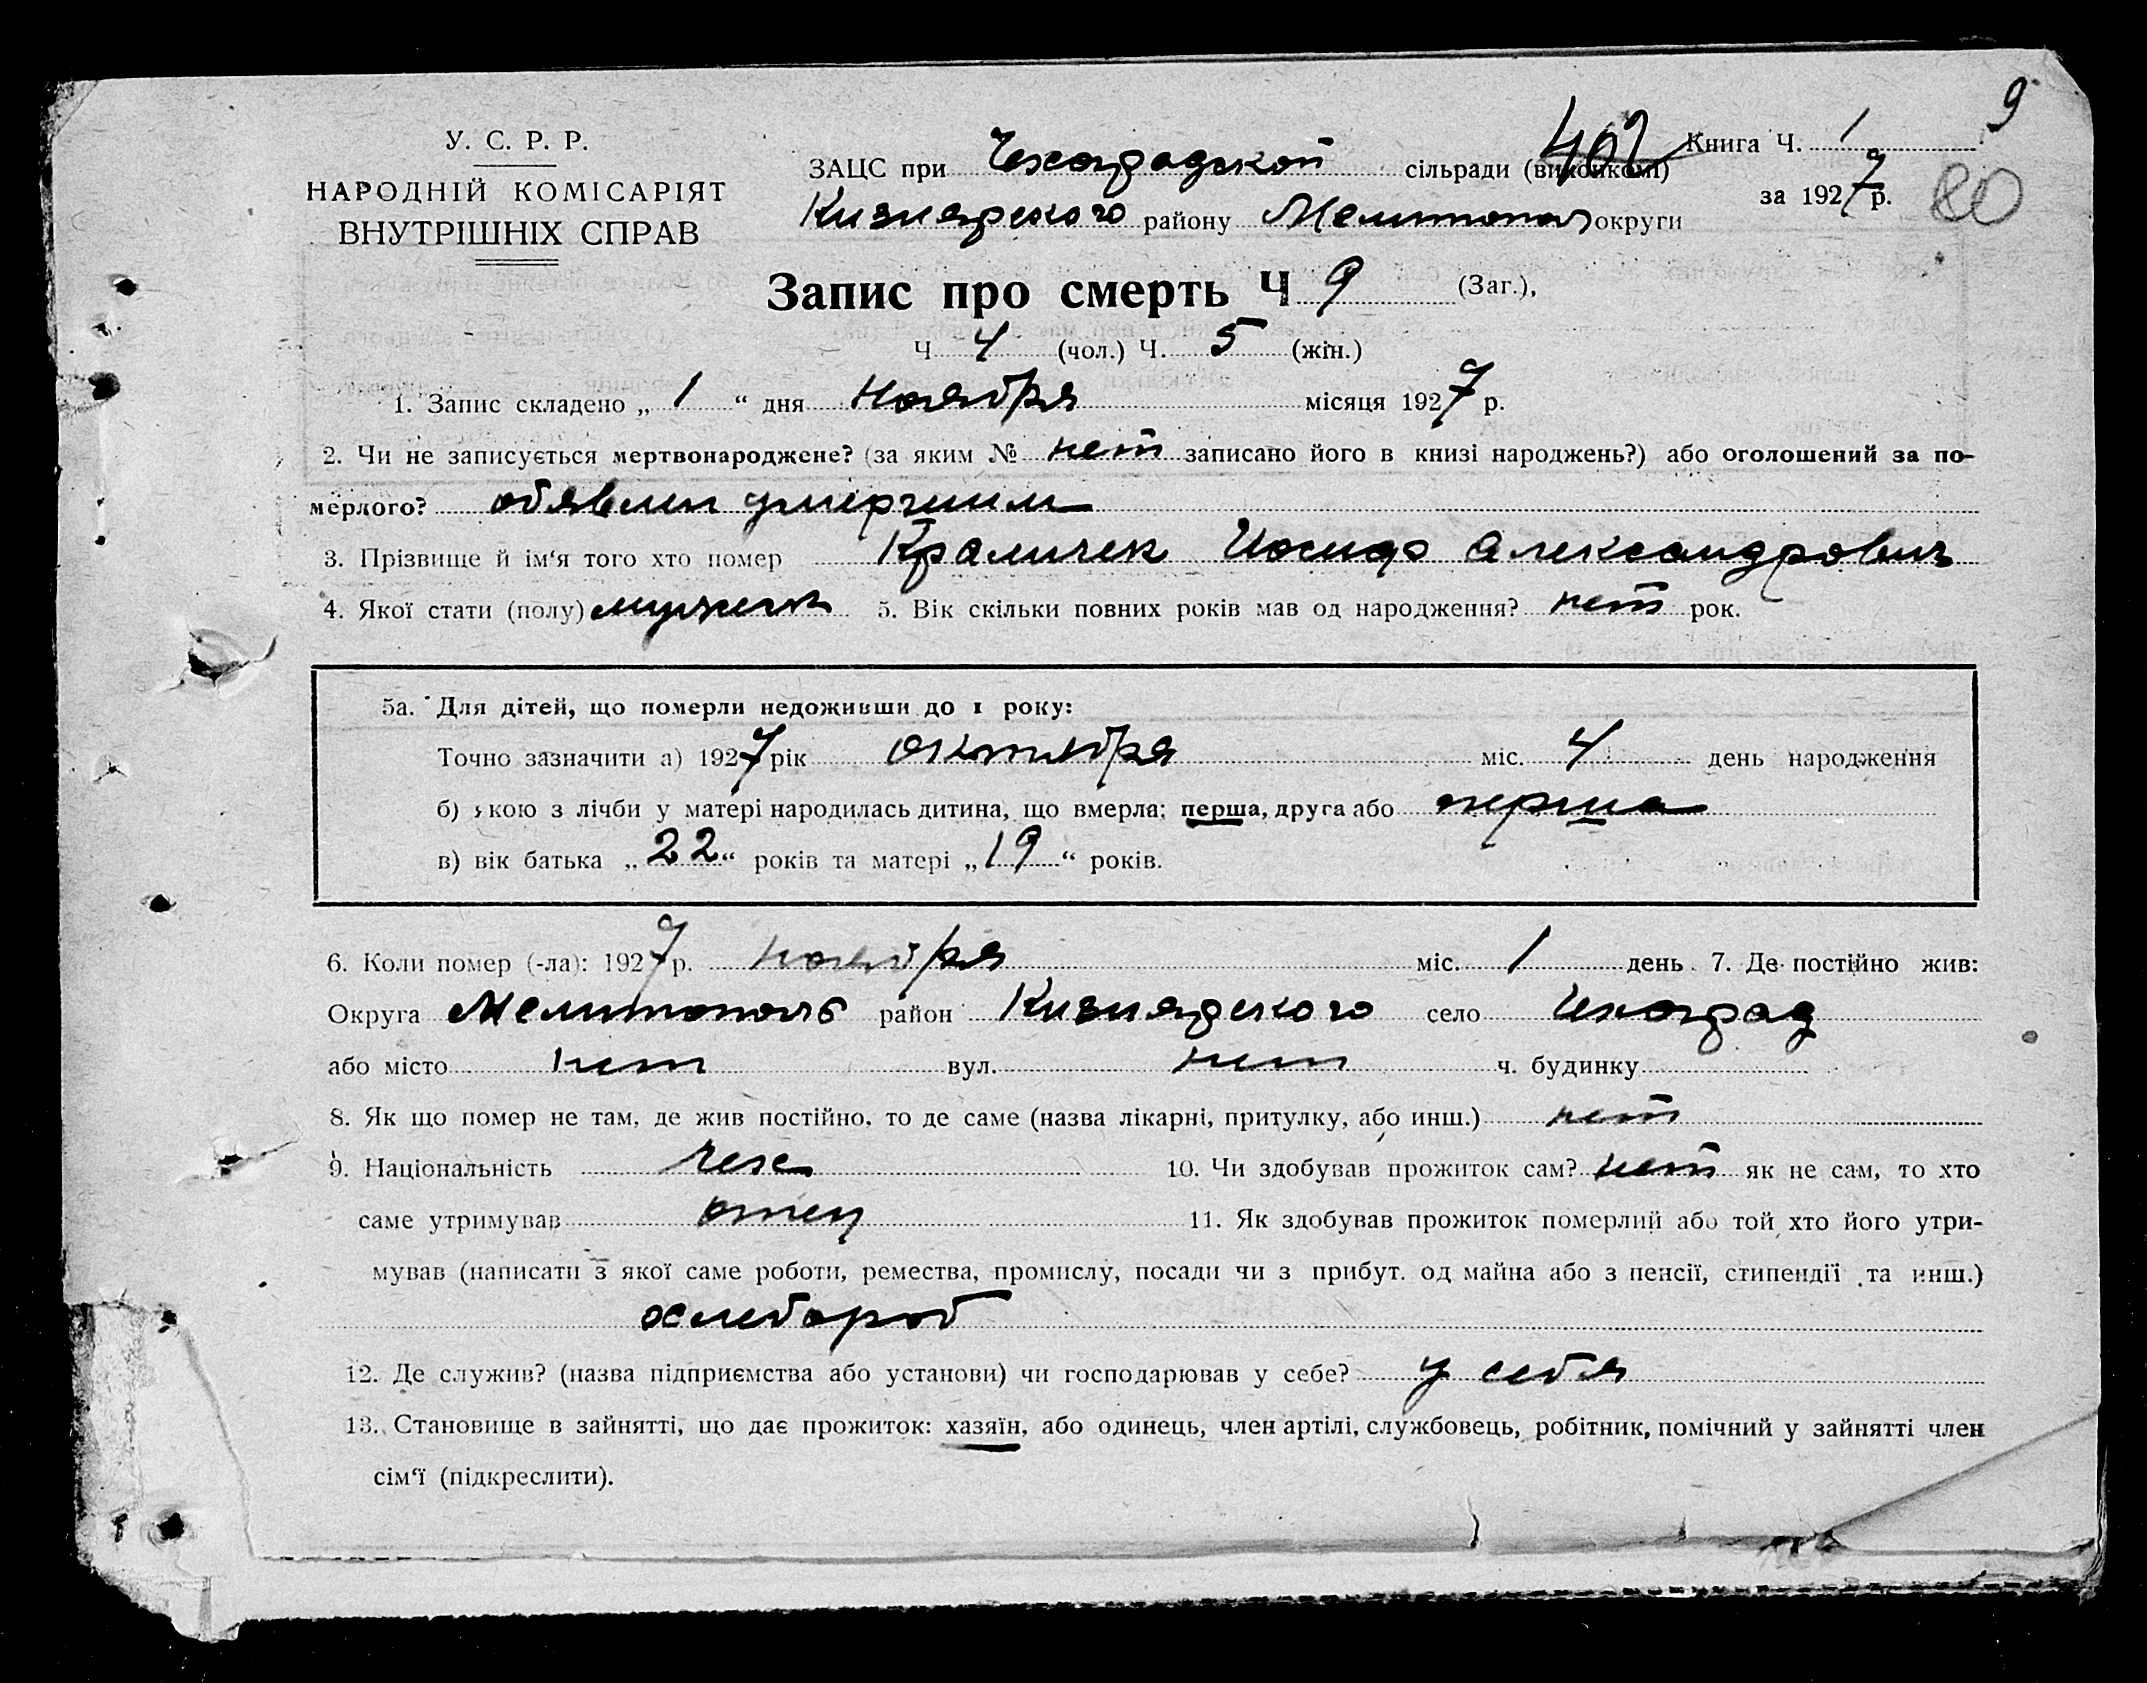 9
У. С. Р. Р.
НАРОДНІЙ КОМІСАРІЯТ
ВНУТРІШНІХ СПРАВ
Книга Ч. 1
за 1927 р. 80
ЗАЦС при Чехоградской сільради (виконкомі) 402
Кизиярского району Мелитополь округи
Запис про смерть Ч 9 (Заг.),
Ч 4 (чол.) Ч. 5 (жін.)
1. Запис складено „ 1 “ дня ноября місяця 1927 р.
2. Чи не записується мертвонароджене? (за яким № нет записано його в книзі народжень?) або оголошений за по-
мерлого? обявлен умершим
3. Прізвище й ім‘я того хто помер Краличек Иосиф Александрович
4. Якої стати (полу) мужеск 5. Вік скільки повних років мав од народження? нет рок.
5а. Для дітей, що померли недоживши до 1 року:
Точно зазначити а) 1927 рік октября міс. 4 день народження
б) якою з лічби у матері народилась дитина, що вмерла: перша, друга або перша
в) вік батька „ 22 “ років та матері „ 19 “ років.
6. Коли помер (-ла): 1927 р. ноября міс. 1 день 7. Де постійно жив:
Округа Мелитополь район Кизиярского село Чехоград
або місто нет вул. нет ч. будинку
8. Як що помер не там, де жив постійно, то де саме (назва лікарні, притулку, або инш.) нет
9. Національність чехе 10. Чи здобував прожиток сам? нет як не сам, то хто
саме утримував отец 11. Як здобував прожиток померлий або той хто його утри-
мував (написати з якої саме роботи, ремества, промислу, посади чи з прибут. од майна або з пенсії, стипендії та инш.)
хлебороб
12. Де служив? (назва підприємства або установи) чи господарював у себе? у себя
13. Становище в зайнятті, що дає прожиток: хазяїн, або одинець, член артілі, службовець, робітник, помічний у зайнятті член
сім‘ї (підкреслити).